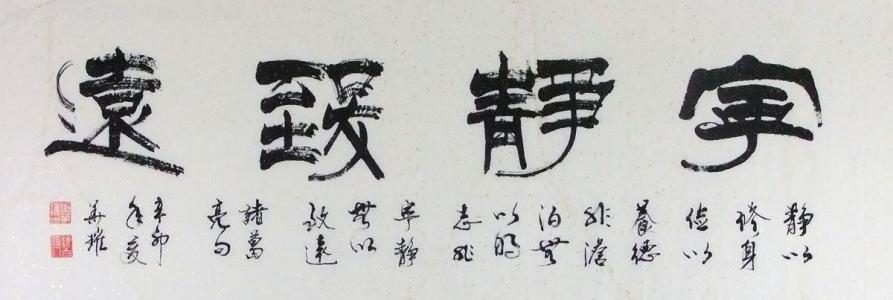 寧靜致遠
静以
修身
儉以
養德
非澹
泊無
以明
志非
寧静
無以
致遠
諸葛
亮句
辛卯